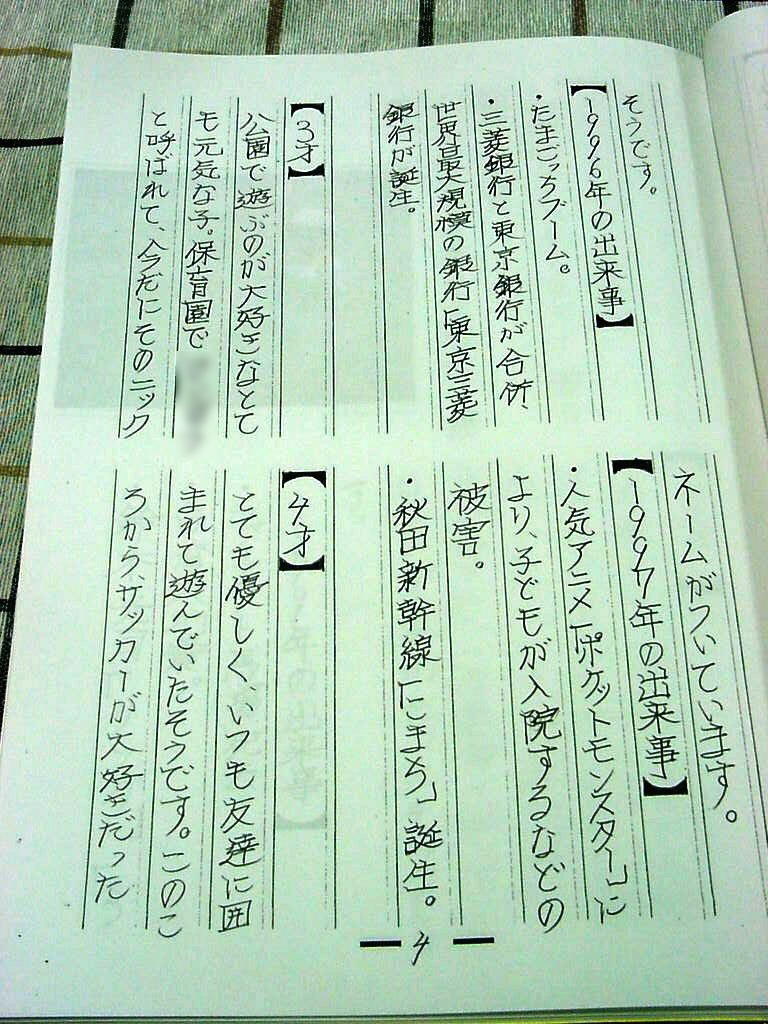 そうです。
【1996年の出来事】
・たまごっちブーム。
・三菱銀行と東京銀行が合併、
世界最大規模の銀行「東京三菱
銀行が誕生。
【3才】
公園で遊ぶのが大好きなとて
も元気な子。保育園で
と呼ばれて、今だにそのニック
ネームがついています。
【1997年の出来事】
・人気アニメ「ポケットモンスター」に
より、子どもが入院するなどの
被害。
・秋田新幹線「こまち」誕生。
【4才】
とても優しく、いつも友達に囲
まれて遊んでいたそうです。このこ
ろから、サッカーが大好きだった
4